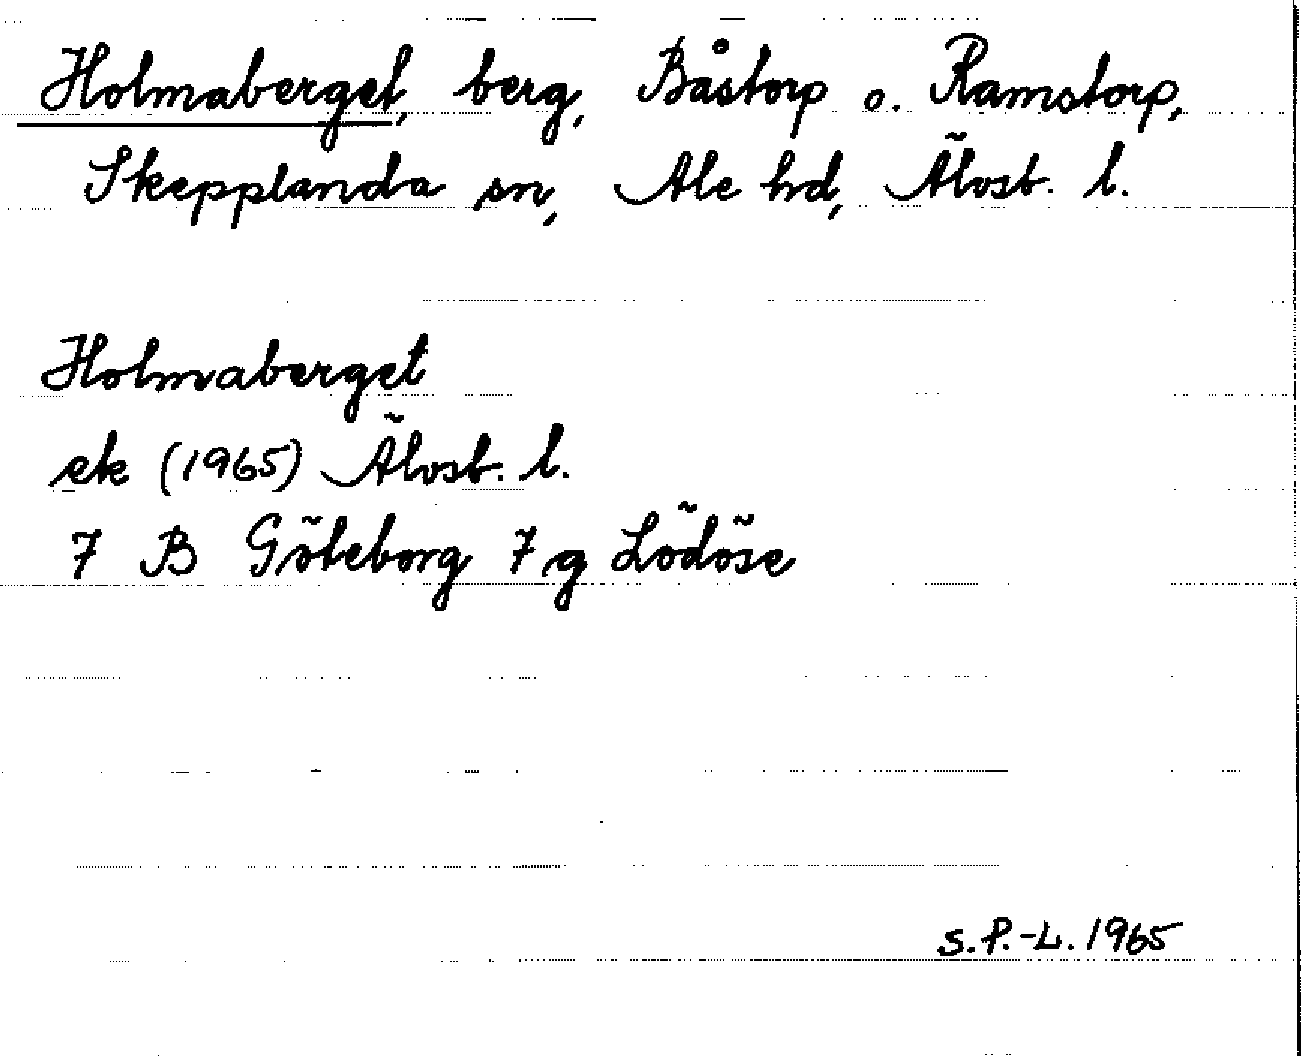 Holmaberget, berg, Båstorp o. Ramstorp,
Skepplanda sn, Ale hd, Älvsb. l.
Holmaberget
ek (1965) Älvsb. l.
7 B Göteborg 7 g Lödöse
S.P.-L. 1965